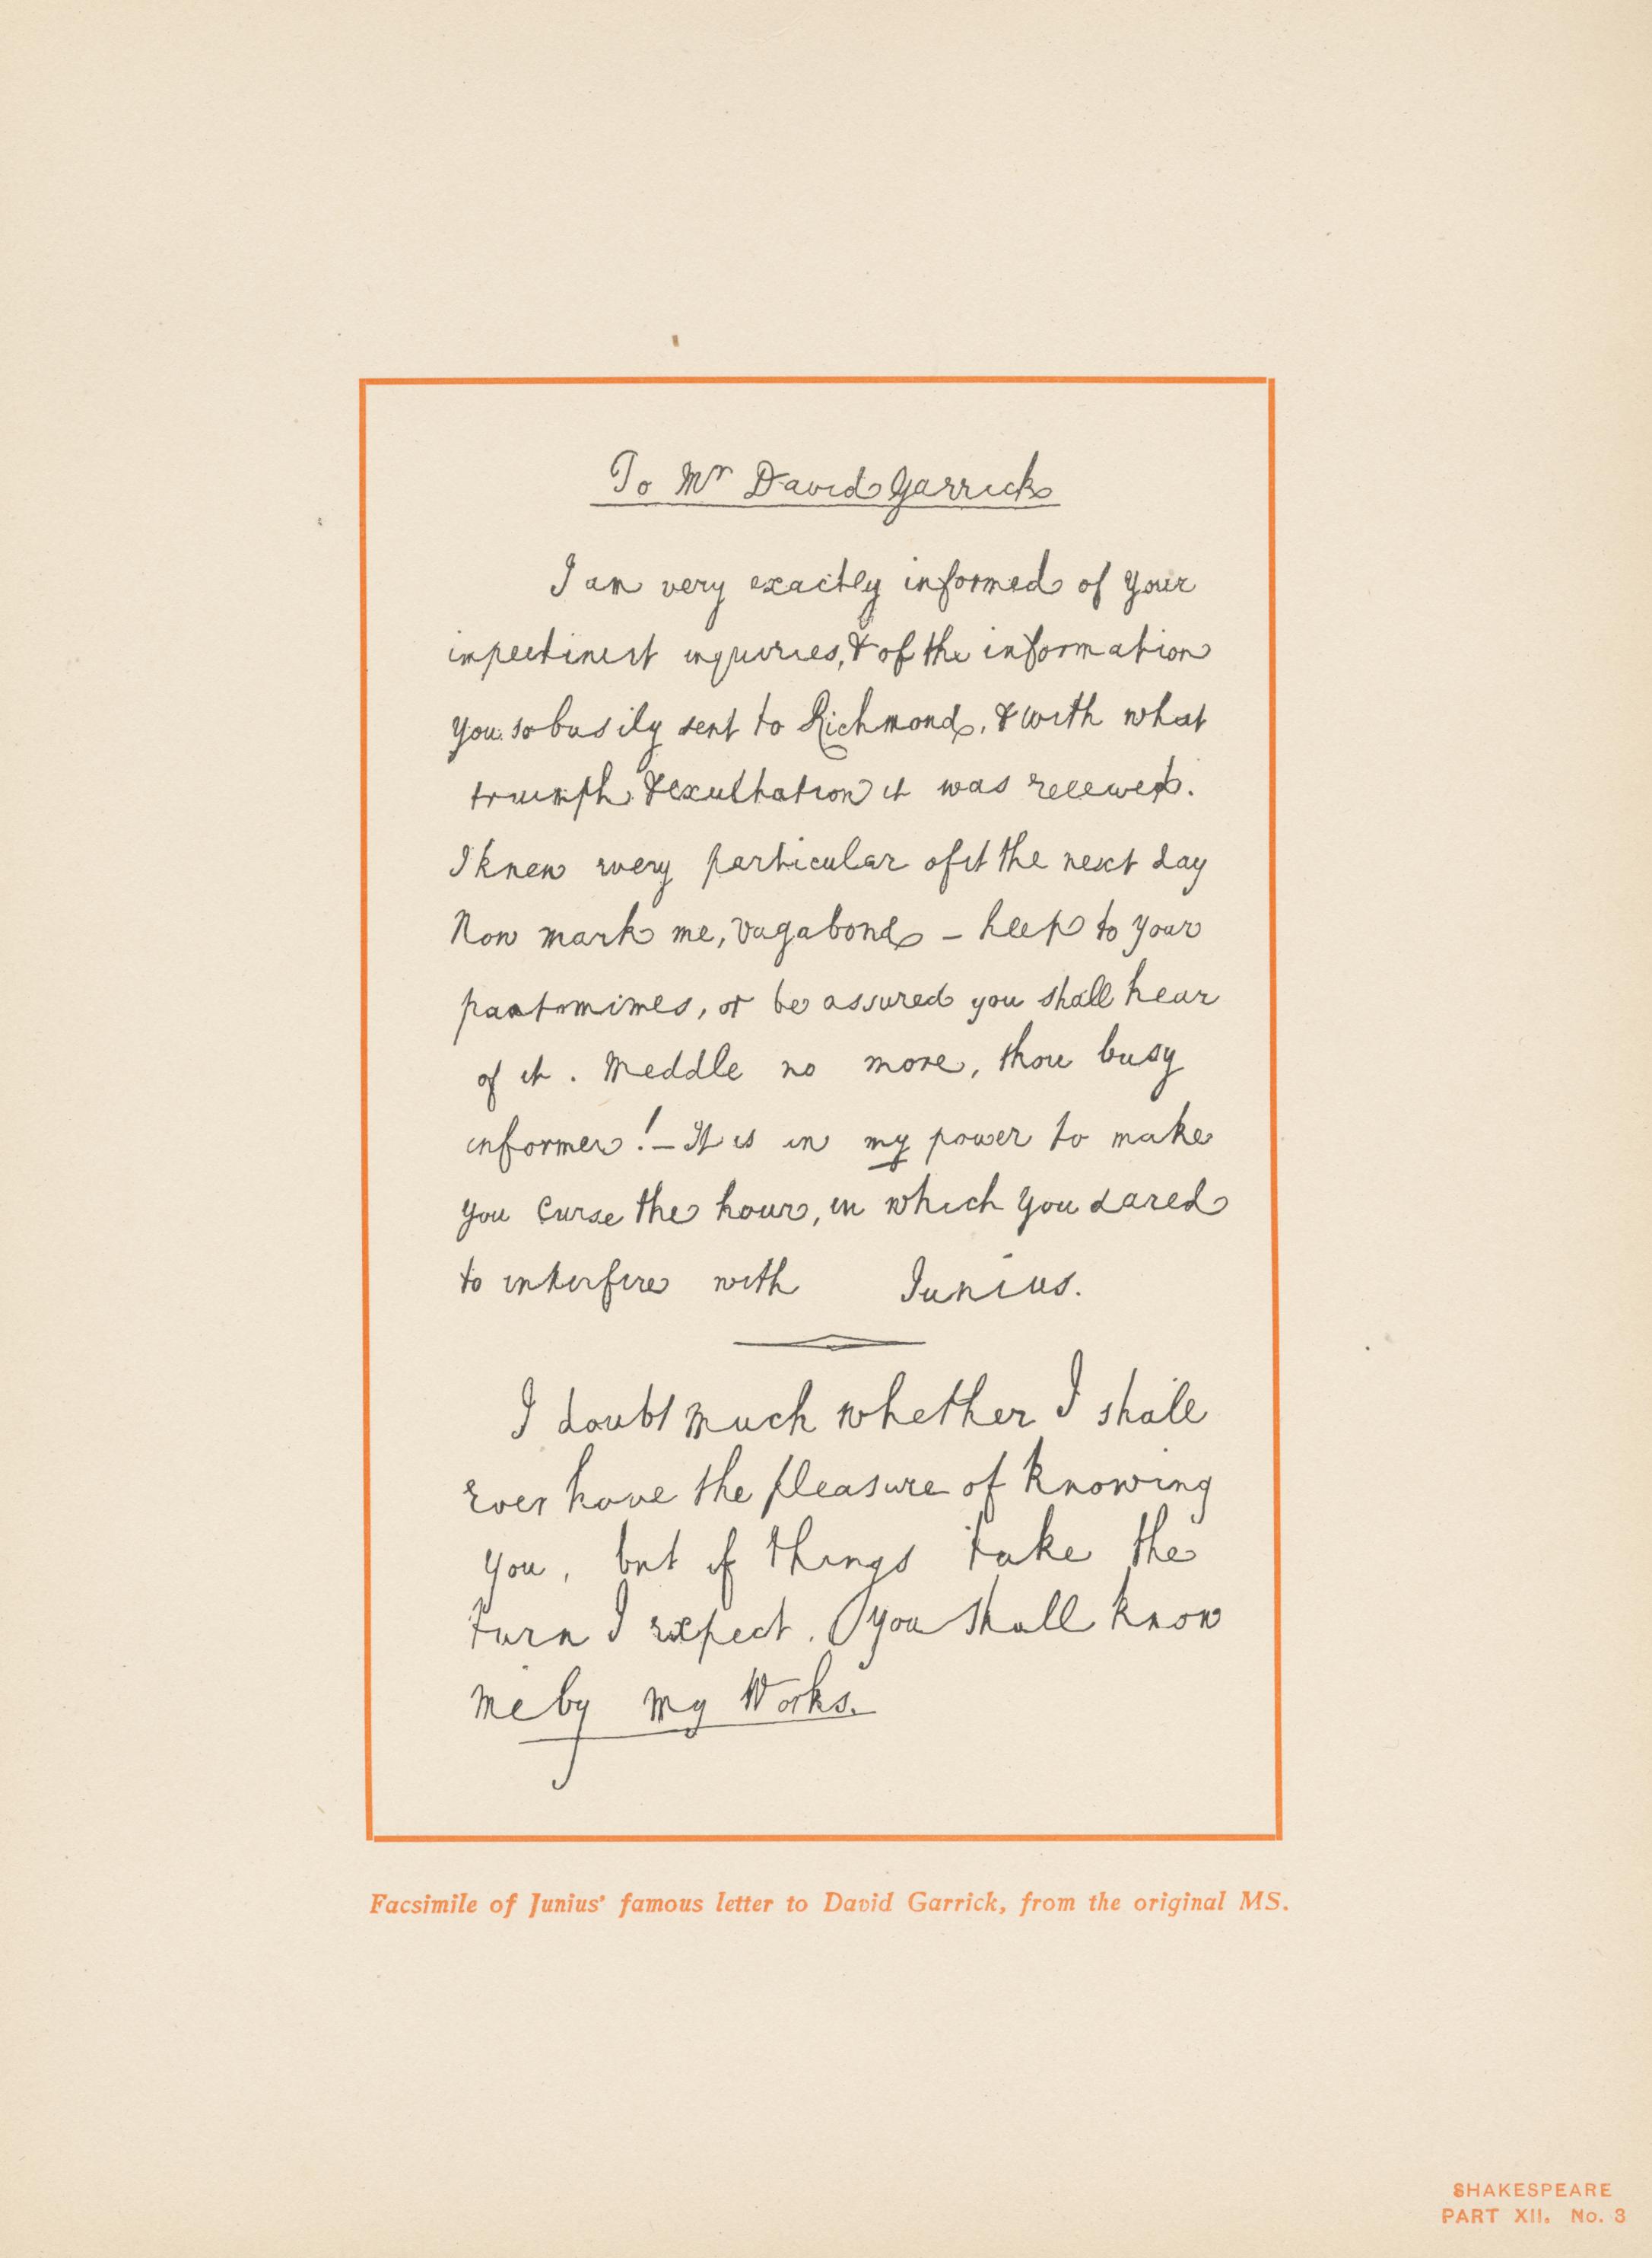 To Mr David Garrick
I am very exactly informed of your
impertinent inquiries, & of the information
you so busily sent to Richmond, & with what
triumph & exultation it was received.
I knew every particular of it the next day
Now mark me, vagabond – keep to your
pantomimes, or be assured you shall hear
of it. Meddle no more, thou busy
informer! – It is in my power to make
you Curse the hour, in which you dared
to interfere with Junius.
I doubt much whether I shall
ever have the pleasure of knowing
you, but if things take the
turn I expect. you shall know
me by my Works.
Facsimile of Junius' famous letter to David Garrick, from the original MS.
SHAKESPEARE
PART XII. No. 3